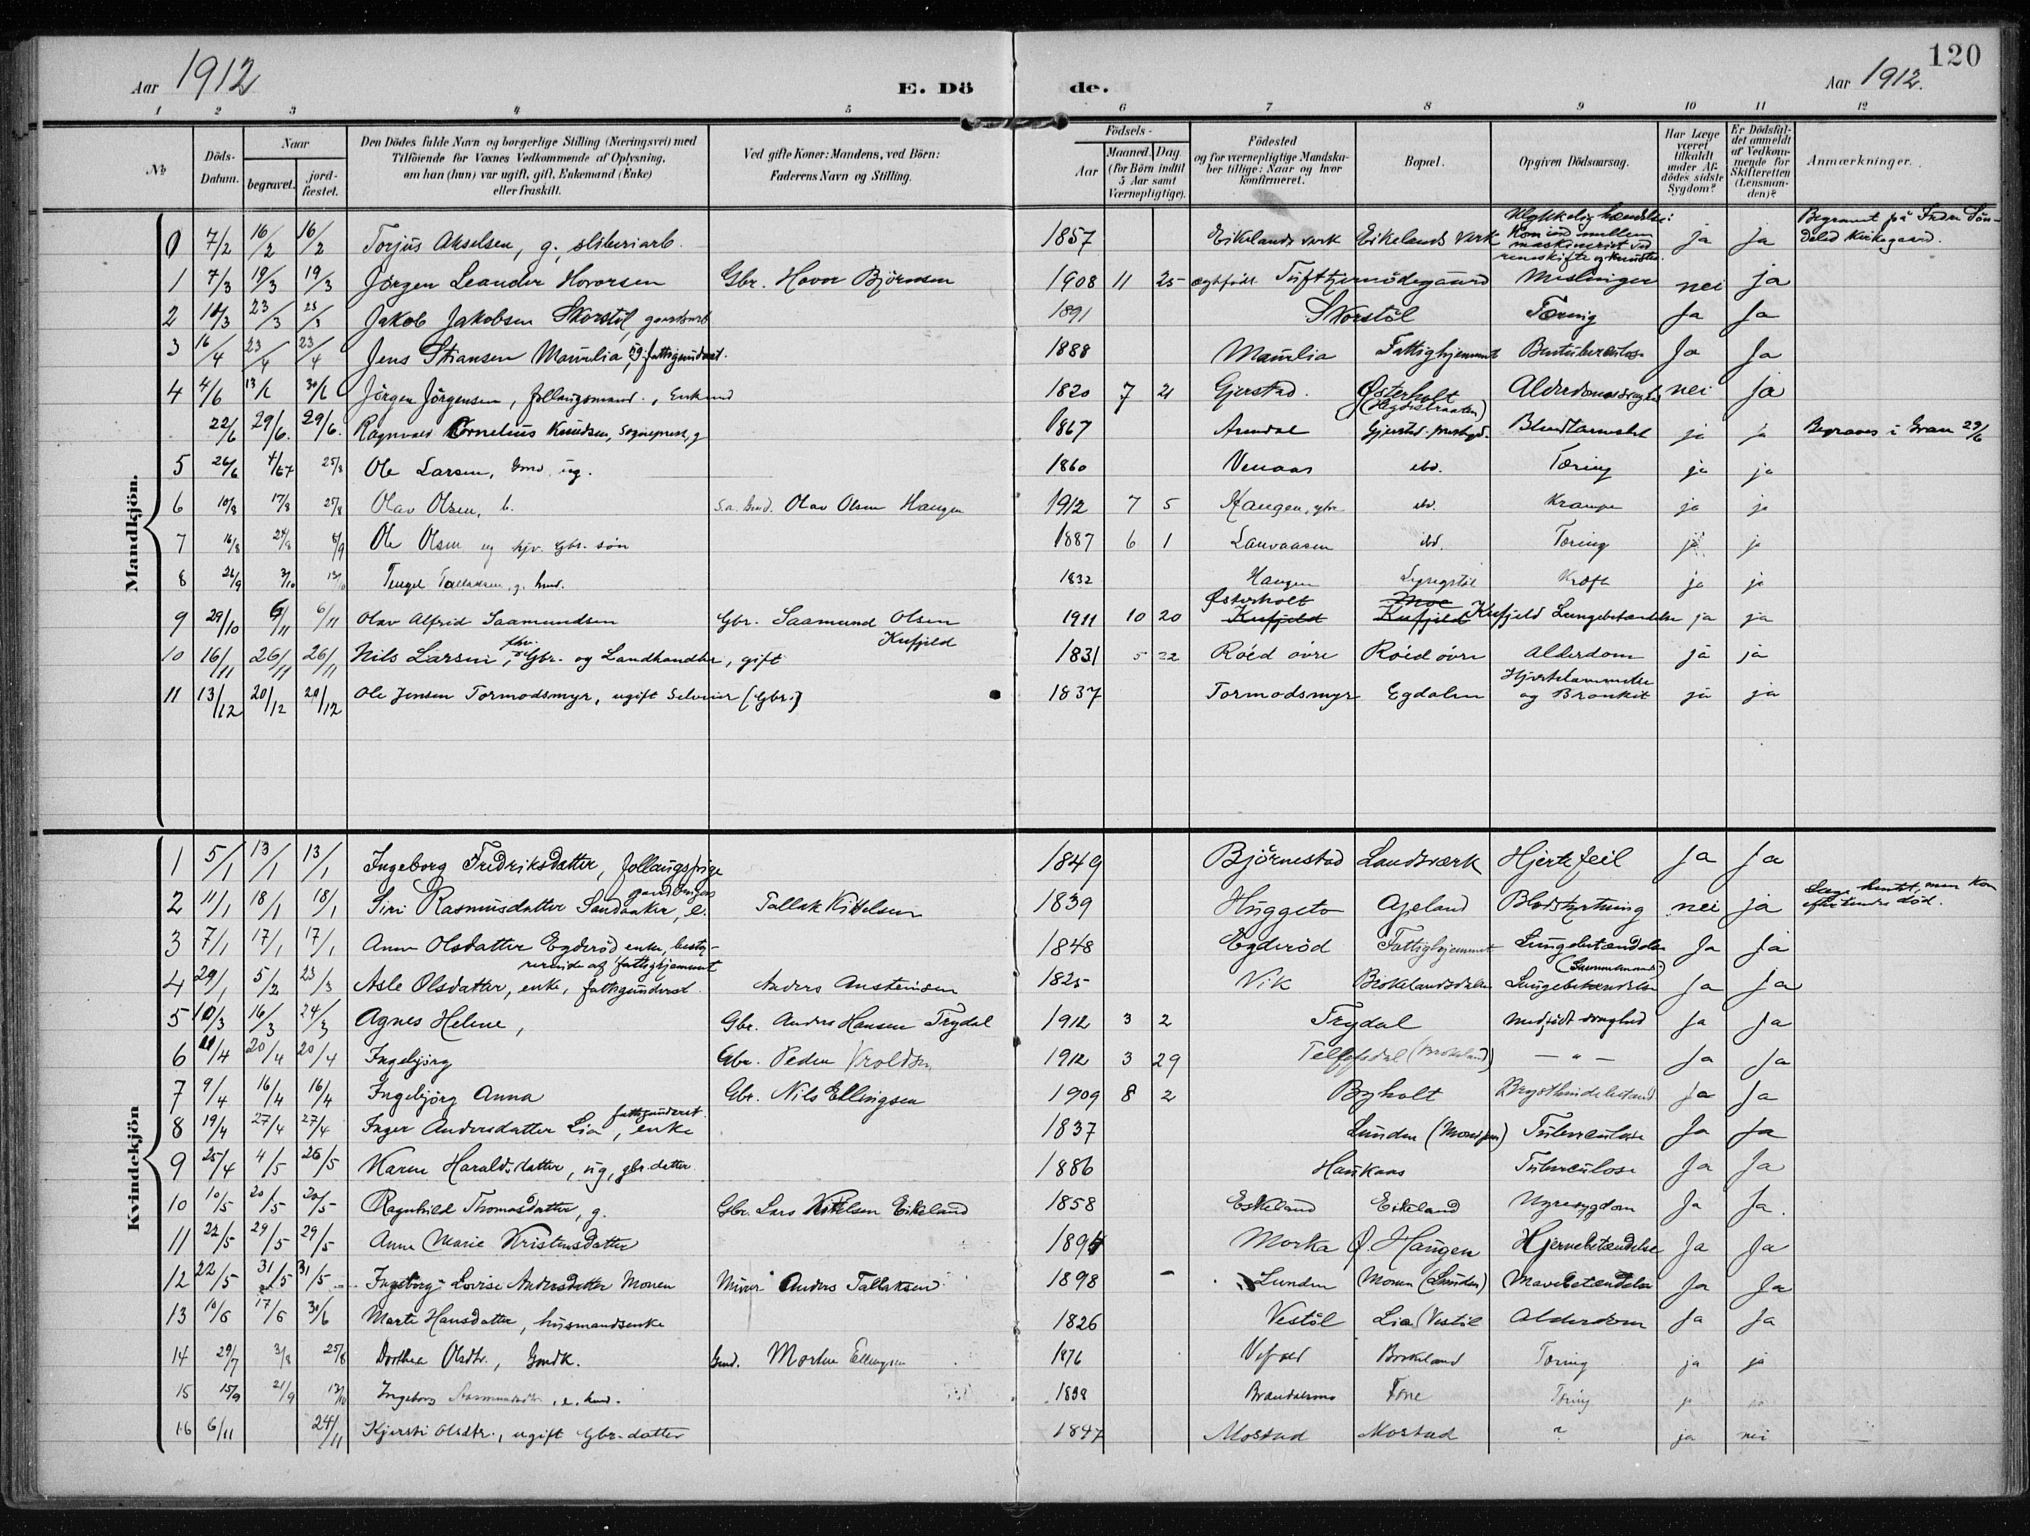 120
Aar 1912 E. Dö de. Aar 1912.
1 2 3 4 5 6 7 8 9 10 11 12
No
Döds-Datum.
Naar
begravet.
jord-fæstet.
Den Dödes fulde Navn og borgerlige Stilling (Næringsvei) med
Tilföiende for Voxnes Vedkommende af Oplysning,
om han (hun) var ugift, gift, Enkemand (Enke)
eller fraskilt.
Ved gifte Koner: Mandens, ved Börn:
Faderens Navn og Stilling.
Födsels-
Aar
Maaned. Dag.
(for Börn indtil
5 Aar samt
Værnepligtige).
Födested
og for værnepligtige Mandska-
ber tillige: Naar og hvor
konfirmeret.
Bopæl.
Opgiven Dödsaarsag.
Har Læge
været
tilkaldt
under Af-
dödes sidste
Sygdom?
Er Dödsfal-
det anmeldt
af Vedkom-
mende for
Skifteretten
(Lensman-
den)?
Anmærkninger.
Mandkjön.
0 7/2 16/2 16/2 Torjus Akselsen, g, sliberiarb. 1857 Eikelands verk Eikelands Verk Ulykkelig hændelse: Kom ind mellem maskineriet ved remskifte og knustes. ja ja Begravet på Indre Søndeled Kirkegaard.
1 7/3 19/3 19/3 Jørgen Leander Hovorsen Gbr. Hovor Bjørnsen 1908 11 25 ægtefødt Tufttjernødegaard Meslinger nei ja
2 18/3 23/3 23/3 Jakob Jakobsen Skorstøl, gaardarb 1891 Skorstøl Tæring Ja Ja
3 16/4 23/4 23/4 Jens Stiansen Maurlia, ug. fattigunderst. 1888 Maurlia Fattighjemmet Bentuberculose Ja Ja
4 4/6 13/6 30/6 Jörgen Jörgensen, follaugsmand, Enkemd 1820 7 21 Gjerstad. Østerholt Alderdomssvaghed nei ja
22/6 29/6. 29/6. Ragnvald Cornelius Knudsen, Sogneprest, g 1867 Arendal Gjerstad prestegd. Blindtarmsbet ja ja Begraves i Gran 29/6
5 26/6 4/67 25/8 Ole Larsen, Gmd. ug. 1860 Venaas ibd. Tæring ja ja
6 10/8 17/8 25/8 Olav Olsen, b. S.a. Gmd. Olav Olsen Haugen 1912 7 5 Haugen, gbr. ibd. Krampe ja ja
7 16/8 24/8 8/9 Ole Olsen ug hjv. Gbr. søn 1887 6 1 Lauvaasen ibd. Tæring ja ja
8 26/9 3/10 13/10 Tengel Tallaksen, g. hmd. 1832 Haugen Kræft ja ja
9 29/10 6/11 6/11 Olav Alfred Saamundsen Gbr. Saamund Olsen Kufjeld 1911 10 20 Østerholt Kufjeld Moe Kufjeld Kufjeld Lungebetændelse ja ja
10 16/11 26/11 26/11 Nils Larsen, fhv. Gbr. og Landhandler, gift 1831 5 22 Røed øvre Røed øvre Alderdom ja ja
11 13/12 20/12 20/12 Ole Jensen Tormodsmyr, ugift Selveier (Gbr.) 1837 Tormodsmyr Egdalen Hjertelammelse og Bronkit ja ja
Kvindekjön
1 5/1 13/1 13/1 Ingeborg Fredriksdatter, follaugspige 1849 Bjørnestad Landsværk Hjertefeil Ja Ja
2 11/1 18/1 18/1 Siri Rasmusdatter Sandaaker, e. Tallak Kittelsen 1839 Huggeto Apeland Blodstyrtning nei ja Læge hentet, men kom efter hendes død.
3 7/1 17/1 17/1 Anne Olsdatter Egderød enke, besty-
rerinde af fattighjemmet 1848 Egderød Fattighjemmet Lungebetændelse Ja Ja
4 29/1 5/2 23/3 Asle Olsdatter, enke, fattigunderst. Anders Austensen 1825 Vik Brokelandsdalen Lungebetændelse Ja Ja
5 10/3 16/3 24/3 Agnes Helene, Gbr. Anders Hansen Trydal 1912 3 2 Trydal Medfødt svaghed Ja Ja
6 11/4 20/4 20/4 Ingebjørg Gbr. Peder Vroldsen 1912 3 29 (Brokeland) — " — Ja Ja
7 9/4 16/4 16/4 Ingebjørg Anna Gbr. Nils Ellingsen 1909 8 2 Byholt Brysthindebetænd Ja Ja
8 19/4 27/4 27/4 Inger Andersdatter Lia, fattigunderst. enke 1837 Lunden Tuberculose Ja Ja
9 25/4 4/5 26/5 Karen Haraldsdatter, ug, gbr.datter 1886 Haukaas Tuberculose Ja Ja
10 10/5 20/5 20/5 Ragnhild Thomasdatter, g. Gbr. Lars Kittelsen Eikeland 1858 Eskeland Eikeland Nyresygdom Ja Ja.
11 22/5 29/5 29/5 Anne Marie Kristensdatter 1895 Morka Ø. Haugen Hjernebetændelse Ja Ja
12 22/5 31/5 31/5 Ingeborg Lovise Andersdatter Monen Murer Anders Tallaksen 1898 Lunden Monen (Lunden) Mavebetændelse Ja Ja
13 10/6 17/6 30/6 Marte Hansdatter, husmandsenke 1826 Vestøl Lia (Vestøl Alderdom Ja Ja
14 29/7 3/8 25/8 Dorthea Olsdtr., Gmdk. Gmd. Morten Ellingsen 1876 Brokeland Tæring ja ja
15 15/9 21/9 13/10 Ingeborg Saamundsdtr. e. hmd. 1838 Brandalsmo Tæring ja ja
16 6/11 24/11 Kjersti Olsdtr., ugift Gbr.datter 1847 Mostad Mostad " ja nei